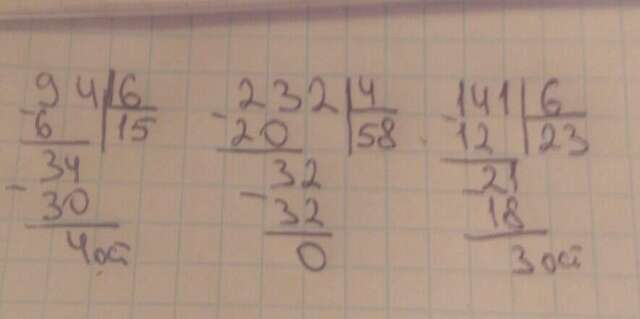 94|6 232|4 141|6
-6 |15 -20 |58 -12 |23
-34 32 -21
30 -32 18
4ост 0 3 ост